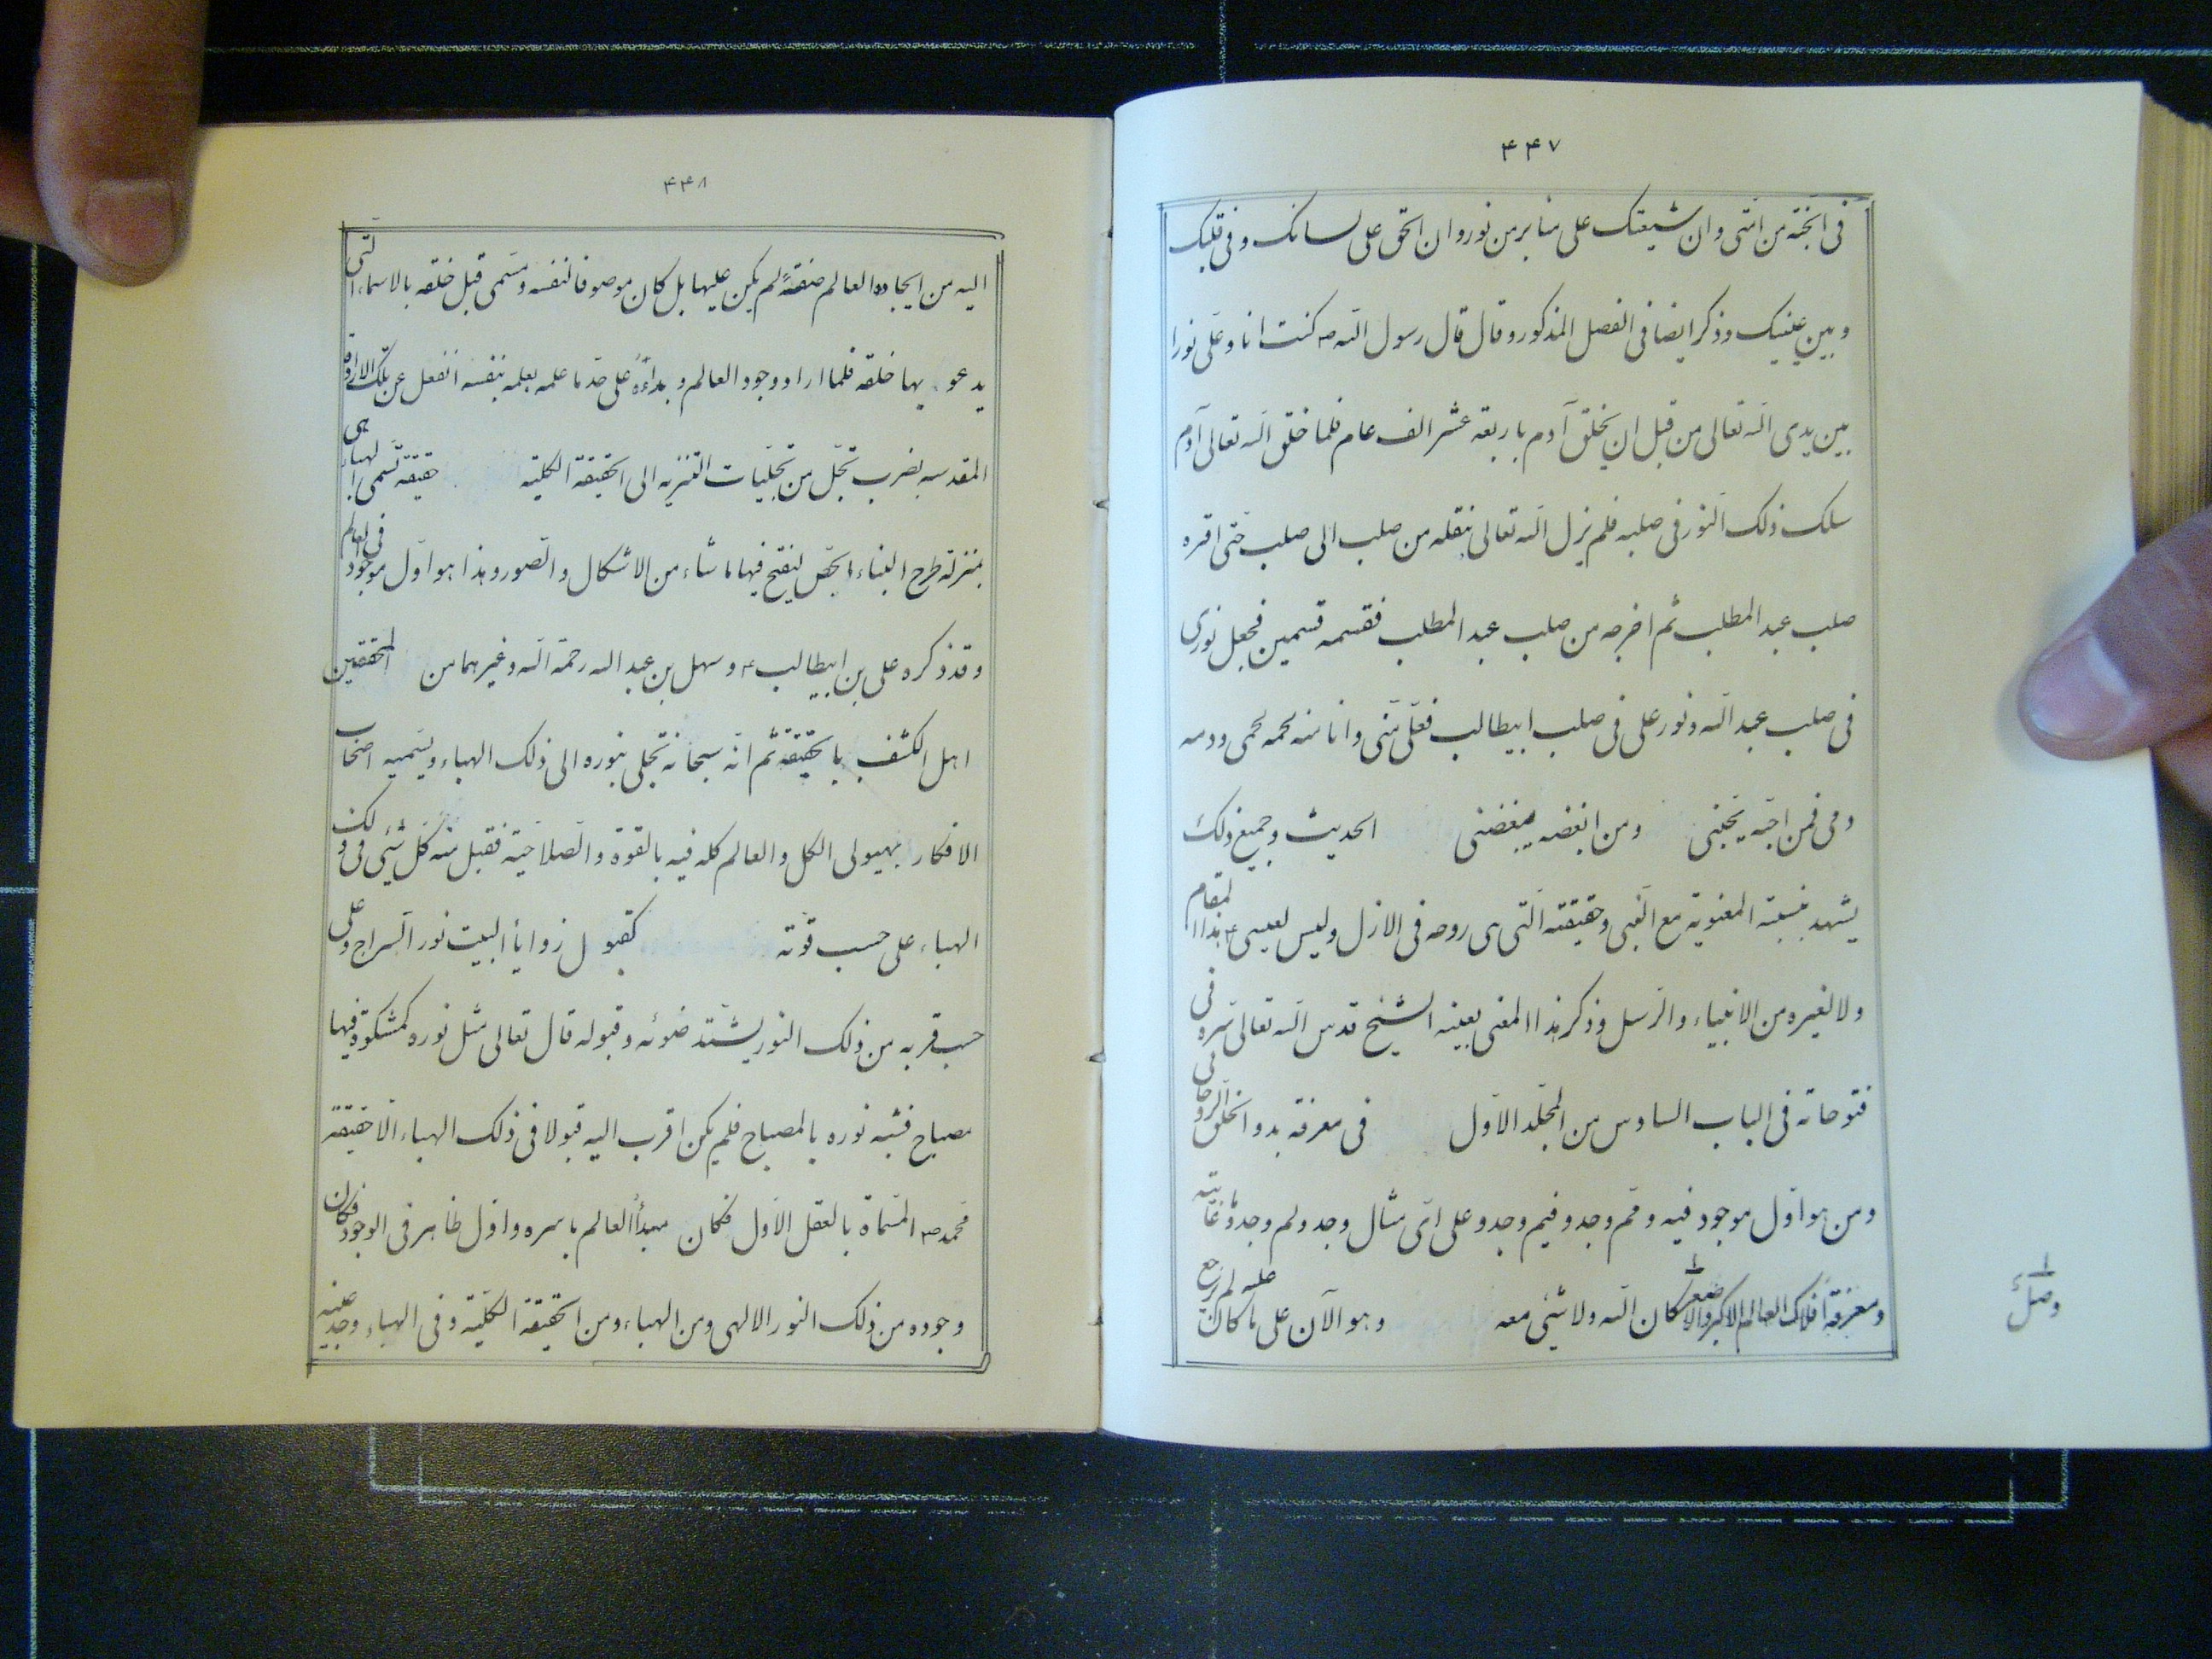 ۴۴۷
فی الجنة من امّتی وان شیعتک علی منابر من نور وان الحق علی لسانک و فی قلبک
و بین عینیک و ذکر ایضا فی الفصل المذکور و قال قال رسول الله ص کنت انا و علی نورا
بین یدی الله تعالی من قبل ان یخلق آدم باربعة عشر الف عام فلما خلق الله تعالی آدم
سلک ذلک النور فی صلبه فلم یزل الله تعالی ینقله من صلب الی صلب حتی اقره
صلب عبد المطلب ثم اخرجه من صلب عبد المطلب فقسمه قسمین فجعل نوری
فی صلب عبد الله و نور علی فی صلب ابیطالب فعلی منّی و انا منه لحمه لحمی و دمه
دمی فمن احبّه یحبنی و من ابغضه یبغضنی الحدیث و جمیع ذلک
یشهد بنسبته المعنویة مع النبی و حقیقته التی هی روحه فی الازل و لیس لعیسی ع هذا المقام
ولا لغیره من الانبیاء و الرسل و ذکر هذا المعنی بعینه الشیخ قدس الله تعالی سره فی
فتوحاته فی الباب السادس من المجلد الاول فی معرفة بدو الخلق الروحانی
و من هو اول موجود فیه و ممّ وجد و فیم وجد و علی ایّ مثال وجد و لم وجد و ما غایته
و معرفة افلاک العالم الاکبر و الاصغر کان الله ولا شئی معه و هو الآن علی ما کان علیه لم یرجع
وصل
۴۴۸
الیه من ایجاده العالم صفةً لم یکن علیها بل کان موصوفا لنفسه و مسمی قبل خلقه بالاسماء التی
یدعو بها خلقه فلما اراد وجود العالم و بداءَهُ علی حدّ ما علمه بعلمه بنفسه انفعل عن تلک الارادة
المقدسه بضرب تجلّ من تجلّیات التنزیه الی الحقیقة الکلیة حقیقة تسمی الهباء هی
بمنزلة طرح البناء الجصّ لیفتح فیها ما شاء من الاشکال و الصور و هذا هو اول موجود فی العالم
و قد ذکره علی بن ابیطالب ع و سهل بن عبد الله رحمة الله و غیرهما من المحققین
اهل الکشف بالحقیقة ثم انّه سبحانه تجلی بنوره الی ذلک الهباء و یسمیه اصحاب
الافکار بهیولی الکل و العالم کله فیه بالقوة و الصلاحیّة فقبل منه کل شئی فی ذلک
الهباء علی حسب قوّته کقبول زوایا البیت نور السراج و علی
حسب قربه من ذلک النور یشتد ضوئه و قبوله قال تعالی مثل نوره کمشکوة فیها
مصباح فشبه نوره بالمصباح فلم یکن اقرب الیه قبولا فی ذلک الهباء الا حقیقة
محمد ص المسماة بالعقل الاول فکان مبدأ العالم باسره و اول ظاهر فی الوجود فکان
وجوده من ذلک النور الالهی و من الهباء و من الحقیقة الکلیة و فی الهباء وجد عینه